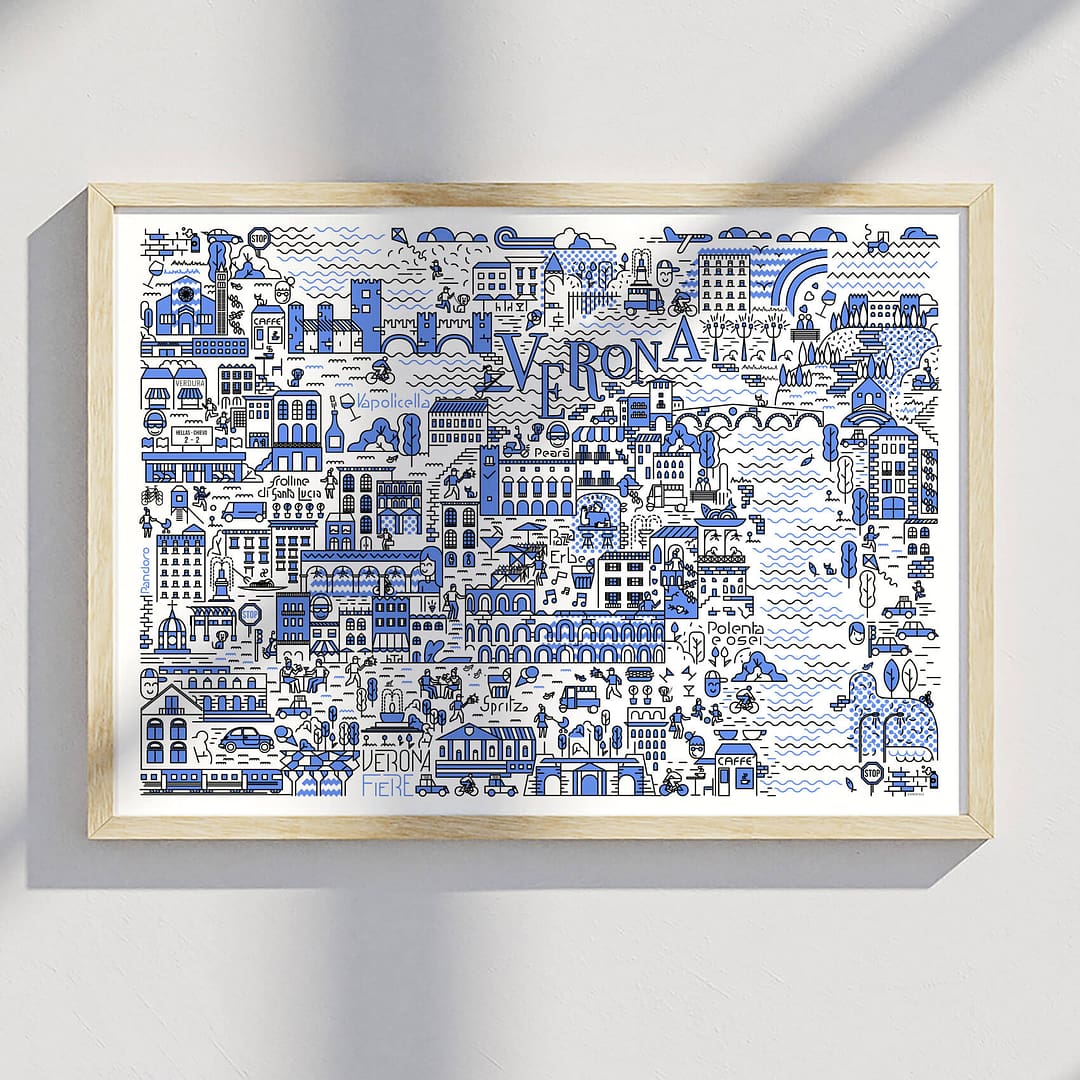 STOP
CAFFE
VERONA
VERDURA
Vapolicella
HELLAS - CHIEVO
2 - 2
Pearà
Frolline
di Santa Lucia
Erbe
Pandoro
STOP
Polenta
e osei
Spritz
VERONA
FIERE
CAFFE
STOP